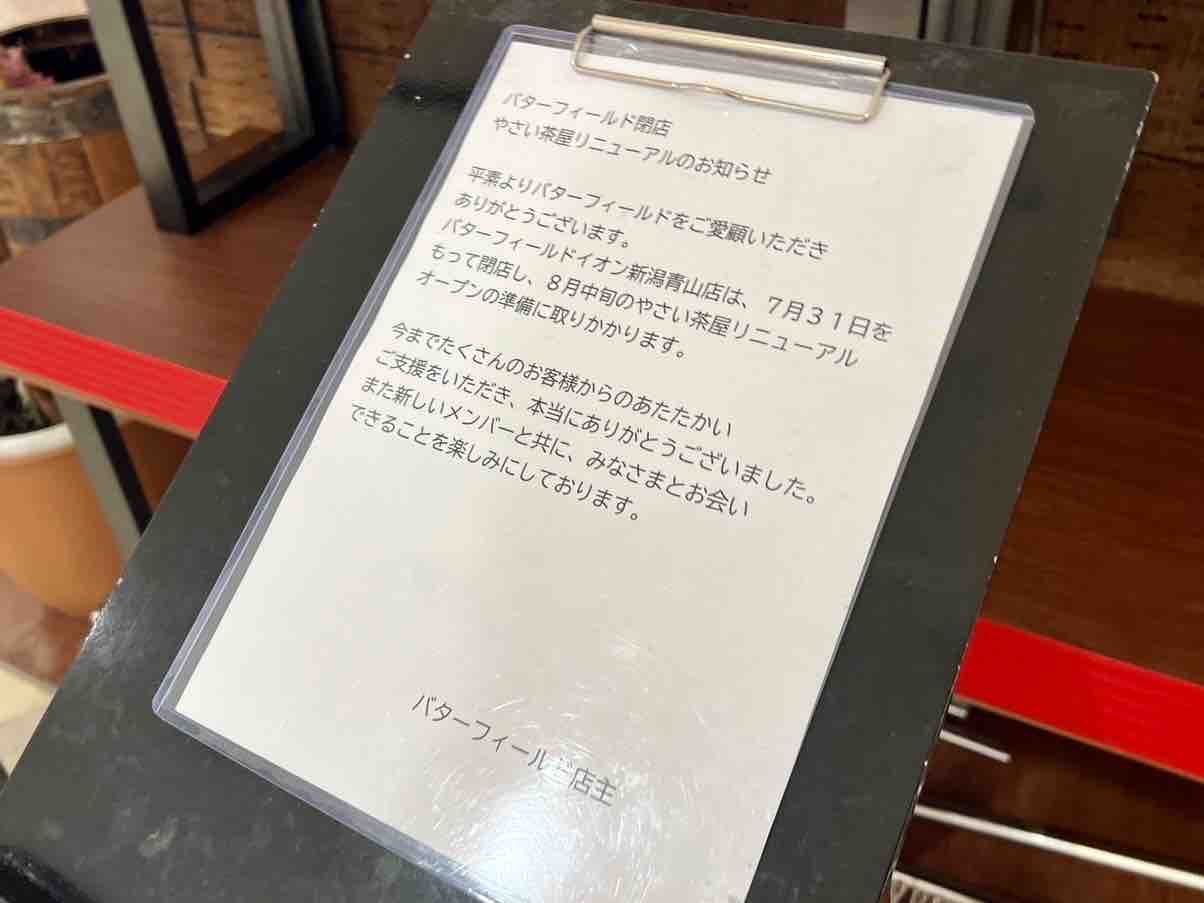 バターフィールド閉店
やさい茶屋リニューアルのお知らせ
平素よりバターフィールドをご愛顧いただき
ありがとうございます。
バターフィールドイオン新潟青山店は、７月３１日を
もって閉店し、８月中旬のやさい茶屋リニューアル
オープンの準備に取りかかります。
今までたくさんのお客様からのあたたかい
ご支援をいただき、本当にありがとうございました。
また新しいメンバーと共に、みなさまとお会い
できることを楽しみにしております。
バターフィールド店主